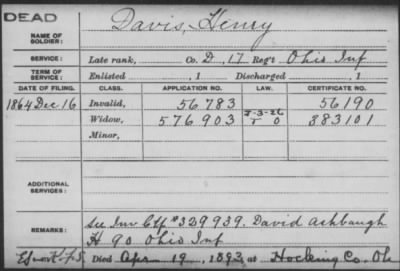 DEAD
NAME OF SOLDIER: Davis, Henry
SERVICE: Late rank, Co. D, 17 Reg't Ohio Inf
TERM OF SERVICE: Enlisted , 1 Discharged , 1
DATE OF FILING. CLASS. APPLICATION NO. LAW. CERTIFICATE NO.
1864 Dec 16 Invalid, 56783 56190
Widow, 576903 383101
Minor,
ADDITIONAL SERVICES:
REMARKS: See Inv Ctf #329939. David Ashbaugh
H 90 Ohio Inf
Died Apr 19, 1893, at Hocking Co. Oh